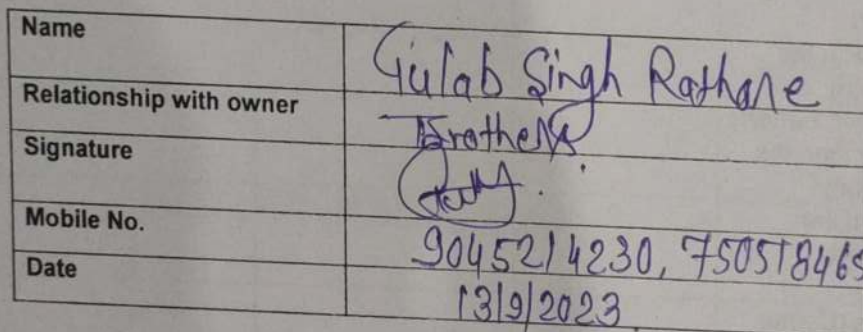 Name Gulab Singh Rathore
Relationship with owner Brother
Signature
Mobile No. 9045214230, 750518465
Date 13/9/2023